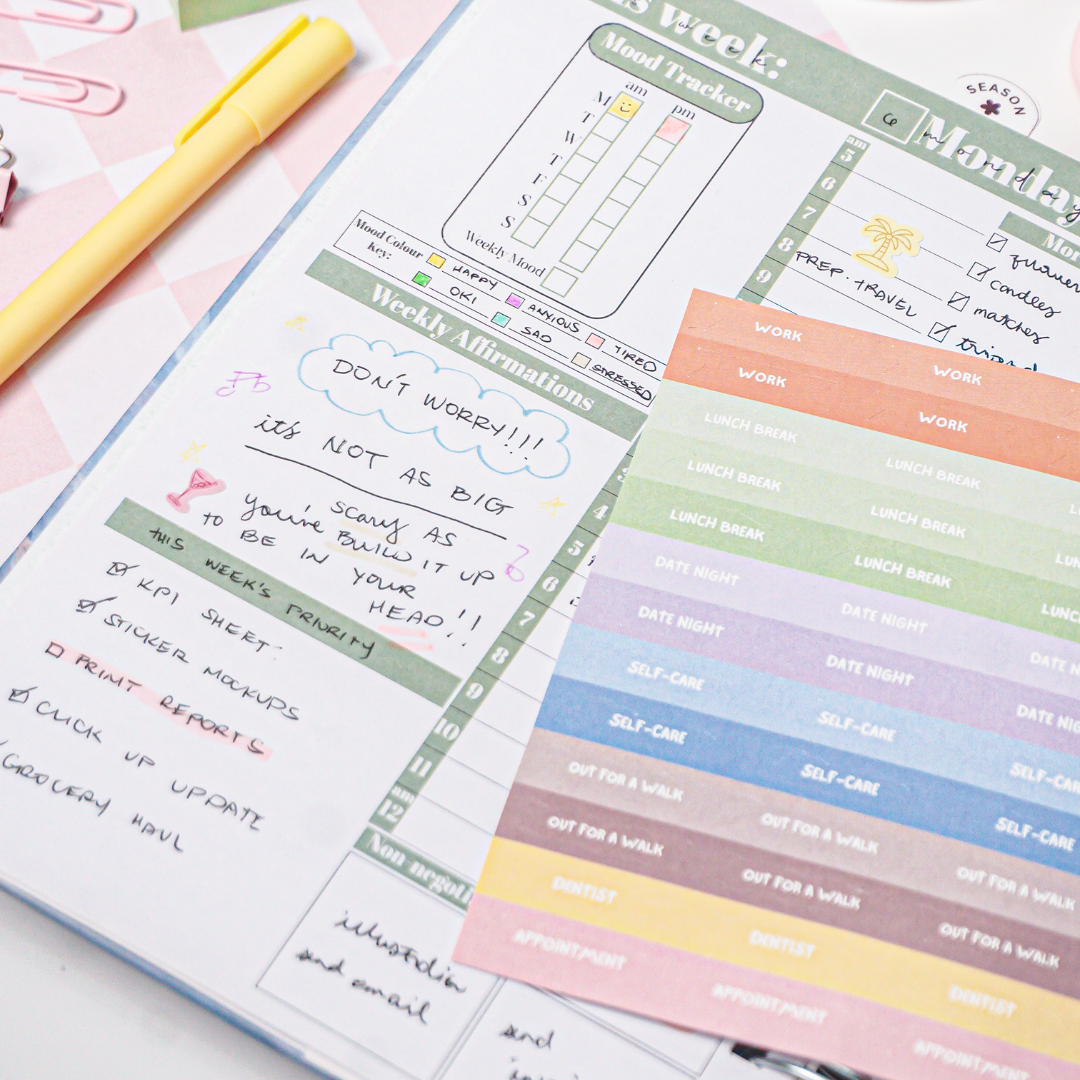 week:
Mood Tracker
am pm
M
T
W
T
F
S
S
Weekly Mood
Mood Colour
key:
HAPPY
ANXIOUS
TIRED
OKI
SAD
STRESSED
Weekly Affirmations
DON'T WORRY!!!
it's NOT AS BIG
scary AS
you're BUILD IT UP
TO BE IN YOUR
HEAD!!
THIS WEEK'S PRIORITY
KPI SHEET:
STICKER MOCKUPS
PRINT REPORTS
CLICK UP UPDATE
GROCERY HAUL
SEASON
6
Monday
monday
am
5
6
7
8
9
PREP. TRAVEL
flowers
candles
matches
4
5
6
7
8
9
10
11
am
12
and email
and
WORK WORK
WORK WORK
LUNCH BREAK LUNCH BREAK
LUNCH BREAK LUNCH BREAK
LUNCH BREAK LUNCH BREAK
DATE NIGHT DATE NIGHT
DATE NIGHT DATE NIGHT
SELF-CARE SELF-CARE SELF-CARE
SELF-CARE SELF-CARE SELF-CARE
OUT FOR A WALK OUT FOR A WALK OUT FOR A WALK
OUT FOR A WALK OUT FOR A WALK OUT FOR A WALK
DENTIST DENTIST DENTIST
APPOINTMENT APPOINTMENT APPOINTMENT